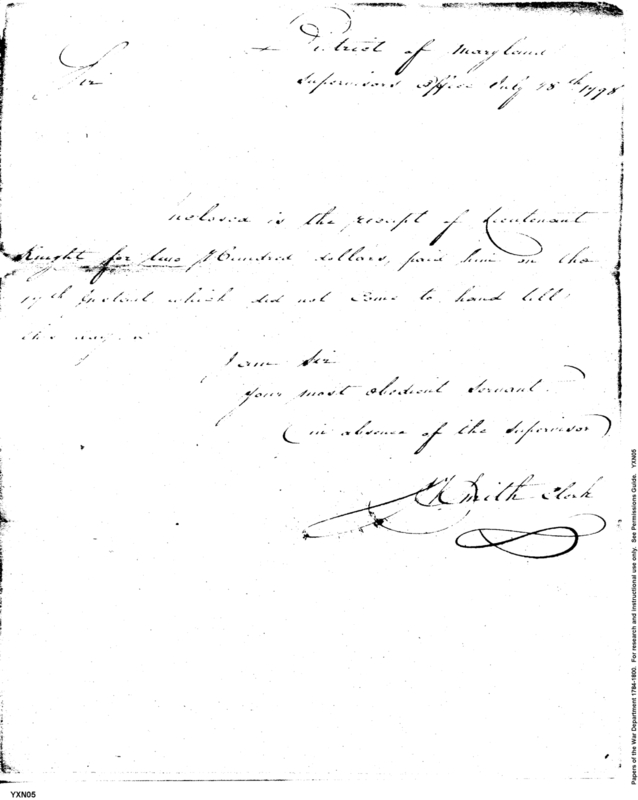 District of Maryland
Sir
Supervisors Office July 28th 1798
Enclosed is the receipt of Lieutenant
Knight for two Hundred dollars, paid him on the
17th Instant which did not come to hand till
this
I am Sir
your most obedient Servant
(in absence of the Supervisor)
Smith Clerk
Papers of the War Department 1784-1800. For research and instructional use only. See Permissions Guide. YXN05
YXN05